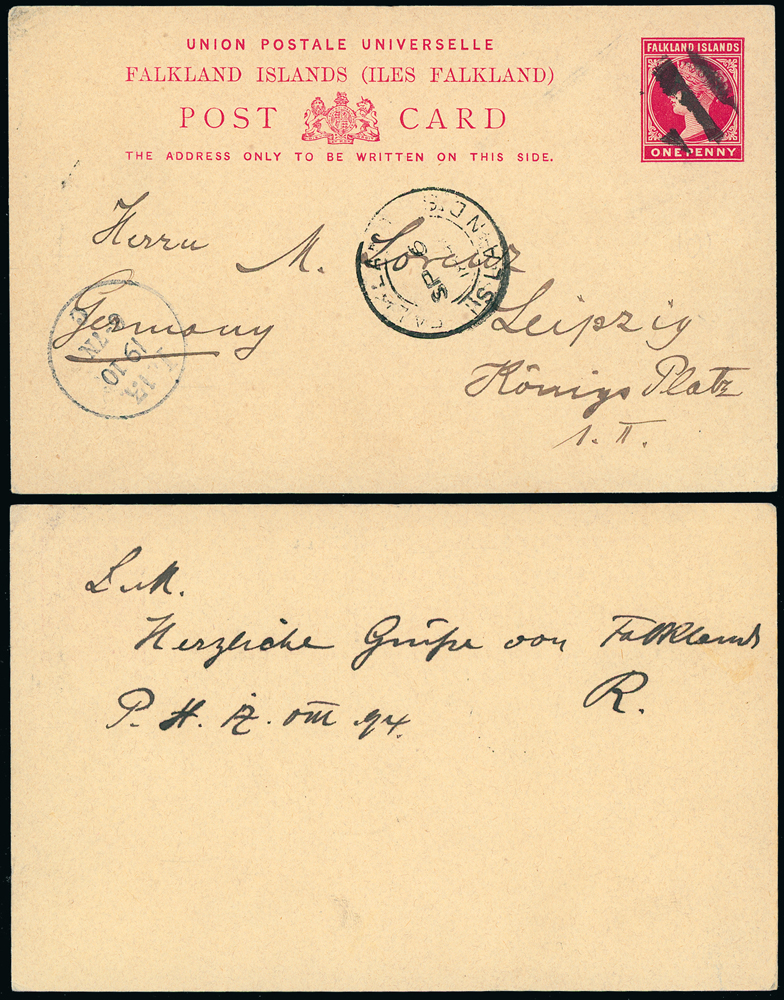 UNION POSTALE UNIVERSELLE
FALKLAND ISLANDS (ILES FALKLAND)
POST CARD
THE ADDRESS ONLY TO BE WRITTEN ON THIS SIDE.
FALKLAND ISLANDS
ONE PENNY
Herrn M. Lorenz
Germany Leipzig
Königs Platz
1. II.
FALKLAND ISLANDS
SP 6
19 10
L. M.
Herzliche Grüße von Falklands
R.
P. H. VIII 94.